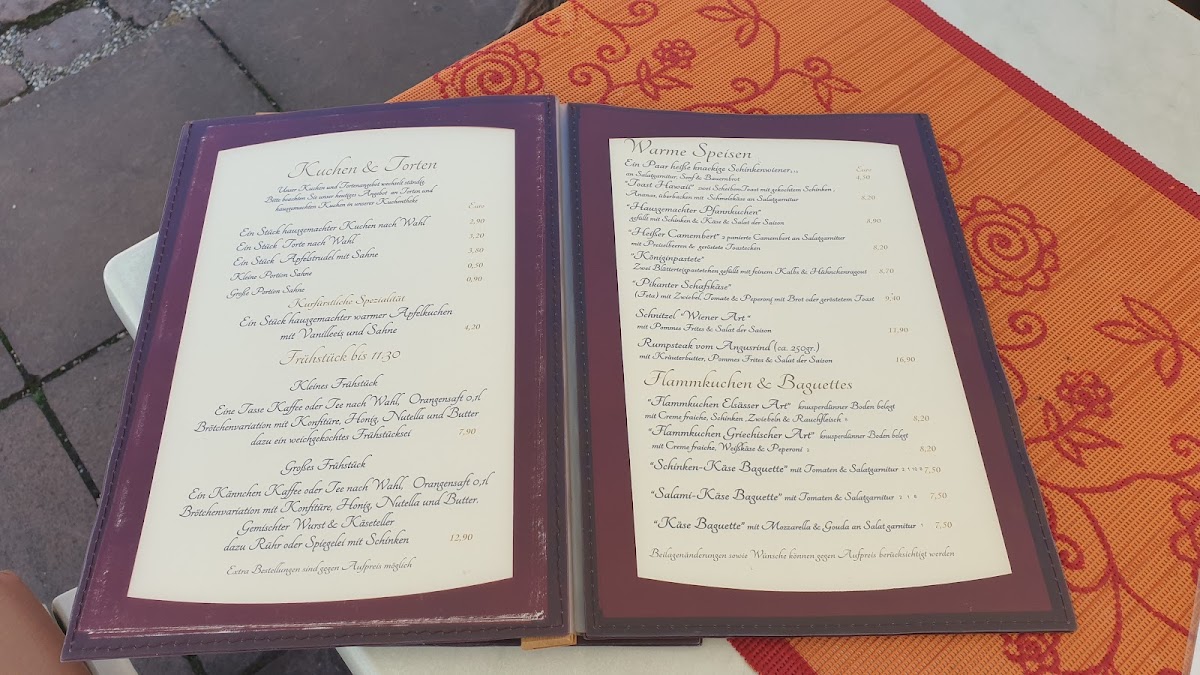 Kuchen & Torten
Unser Kuchen und Tortenangebot wechselt ständig
Bitte beachten Sie unser heutiges Angebot an Torten und
hausgemachten Kuchen in unserer Kuchentheke
Euro
Ein Stück hausgemachter Kuchen nach Wahl 2,90
Ein Stück Torte nach Wahl 3,20
Ein Stück Apfelstrudel mit Sahne 3,80
Kleine Portion Sahne 0,50
Große Portion Sahne 0,90
Kurfürstliche Spezialität
Ein Stück hausgemachter warmer Apfelkuchen
mit Vanilleeis und Sahne 4,20
Frühstück bis 11.30
Kleines Frühstück
Eine Tasse Kaffee oder Tee nach Wahl, Orangensaft 0,1l
Brötchenvariation mit Konfitüre, Honig, Nutella und Butter
dazu ein weichgekochtes Frühstücksei 7,90
Großes Frühstück
Ein Kännchen Kaffee oder Tee nach Wahl, Orangensaft 0,1l
Brötchenvariation mit Konfitüre, Honig, Nutella und Butter.
Gemischter Wurst & Käseteller
dazu Rühr oder Spiegelei mit Schinken 12,90
Extra Bestellungen sind gegen Aufpreis möglich
Warme Speisen
Ein Paar heiße knackige Schinkenwiener... Euro
an Salatgarnitur, Senf & Bauernbrot 4,50
"Toast Hawaii" zwei Scheiben Toast mit gekochtem Schinken ,
Ananas, überbacken mit Schmelzkäse an Salatgarnitur 8,20
"Hausgemachter Pfannkuchen"
gefüllt mit Schinken & Käse & Salat der Saison 8,90
"Heißer Camembert" 2 panierte Camembert an Salatgarnitur
mit Preiselbeeren & geröstete Toastecken 8,20
"Königinpastete"
Zwei Blätterteigpastetchen gefüllt mit feinem Kalbs & Hühnchenragout 8,70
"Pikanter Schafskäse"
(Feta) mit Zwiebel, Tomate & Peperoni mit Brot oder geröstetem Toast 9,40
Schnitzel "Wiener Art"
mit Pommes Frites & Salat der Saison 11,90
Rumpsteak vom Angusrind (ca. 250gr.)
mit Kräuterbutter, Pommes Frites & Salat der Saison 16,90
Flammkuchen & Baguettes
"Flammkuchen Elsässer Art" knusperdünner Boden belegt
mit Creme fraiche, Schinken ,Zwiebeln & Rauchfleisch 2 8,20
"Flammkuchen Griechischer Art" knusperdünner Boden belegt
mit Creme fraiche, Weißkäse & Peperoni 2 8,20
"Schinken-Käse Baguette" mit Tomaten & Salatgarnitur 7,50
"Salami-Käse Baguette" mit Tomaten & Salatgarnitur 7,50
"Käse Baguette" mit Mozzarella & Gouda an Salat garnitur 7,50
Beilagenänderungen sowie Wünsche können gegen Aufpreis berücksichtigt werden